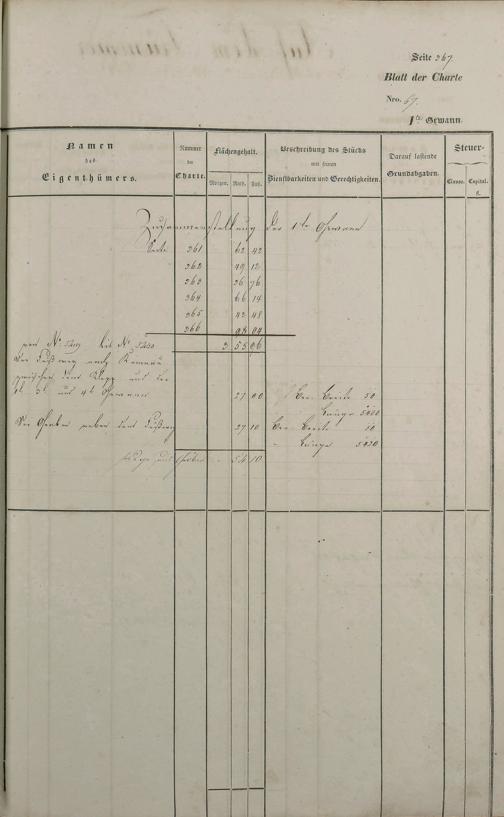 Seite 367
Blatt der Charte
Nro. 67.
1te Gewann.
Namen des Eigenthümers.
Nummer der Charte.
Flächengehalt.
Morgen. Rth. Fuß.
Beschreibung des Stücks mit seinen Dienstbarkeiten und Gerechtigkeiten.
Darauf lastende Grundabgaben.
Steuer-
Classe. Capital. fl.
Zusammenstellung der 1te Gewann
Seite 361 62 42
362 49 12
363 36 76
364 66 14
365 42 48
366
von No 5209 bis No 3 55 86
Der Fußweg nach
zwischen dem und der
3te und 4te Gewann 27 00 der Breite 50
Länge 5400
Der Graben neben dem Fußweg 27 10 der Breite
Länge
Wege und Gräben 54 10